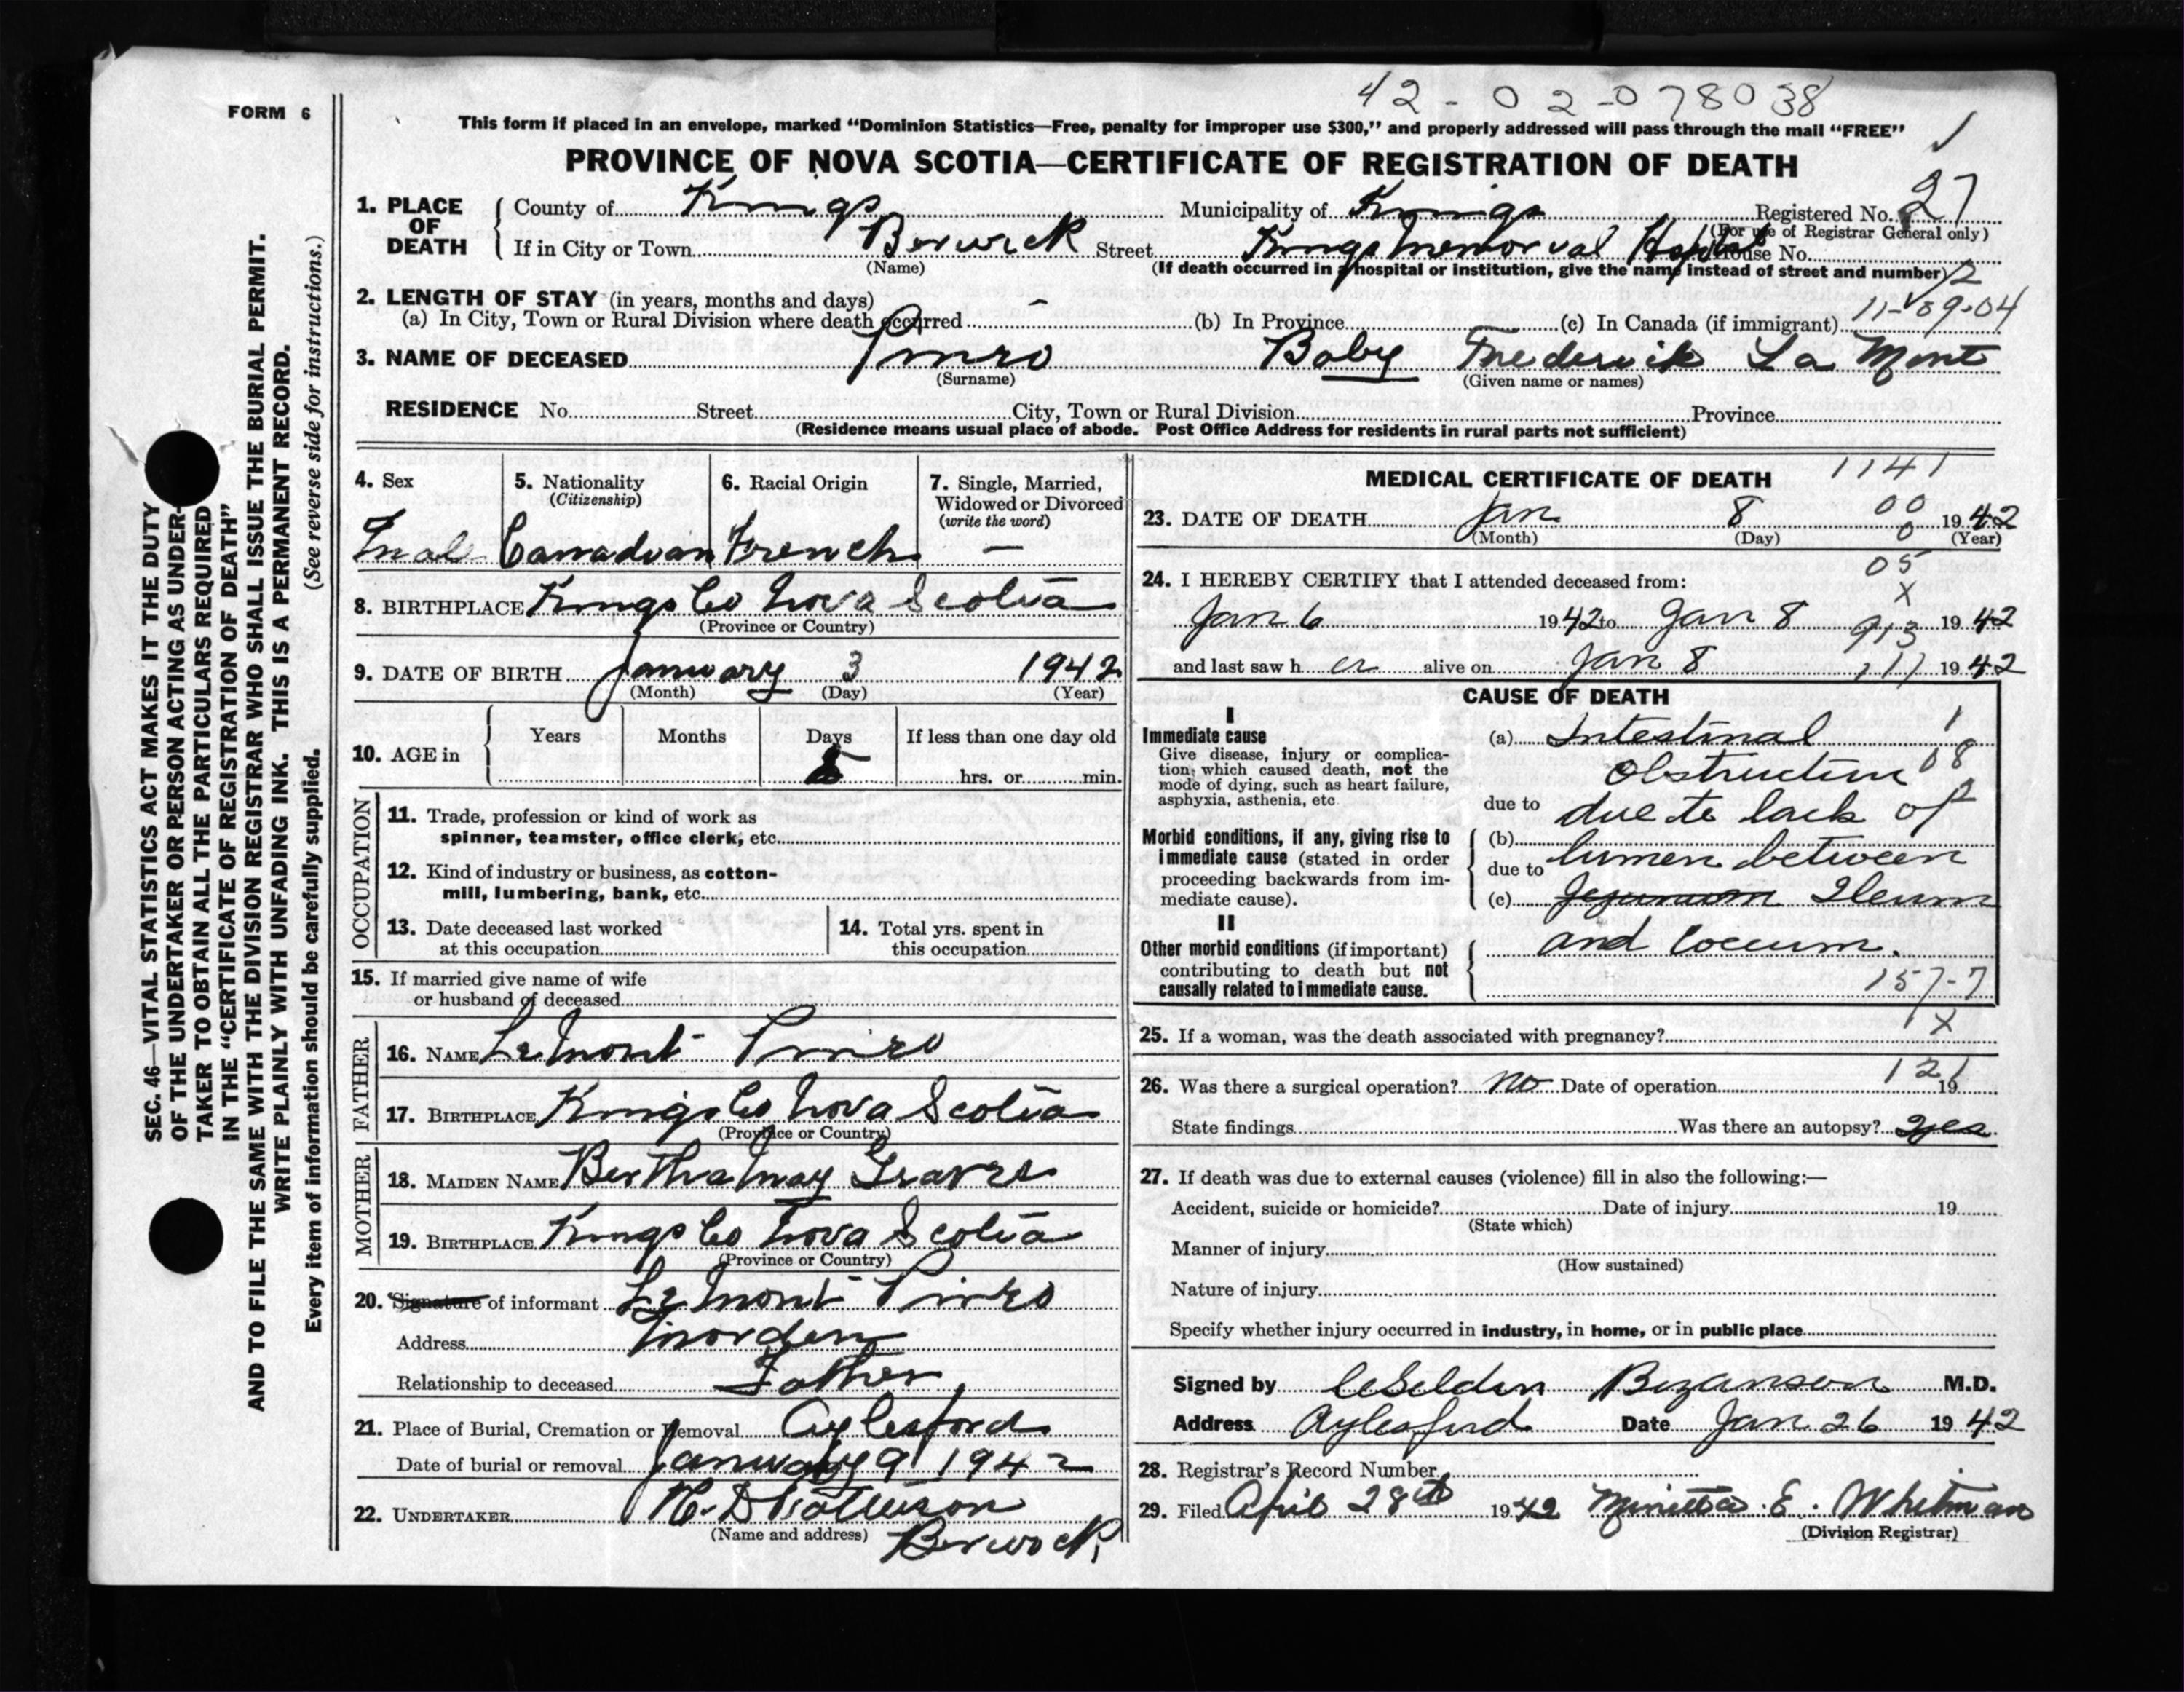 42-02-078038
FORM 6
This form if placed in an envelope, marked “Dominion Statistics—Free, penalty for improper use $300,” and properly addressed will pass through the mail “FREE”
PROVINCE OF NOVA SCOTIA—CERTIFICATE OF REGISTRATION OF DEATH
SEC. 46—VITAL STATISTICS ACT MAKES IT THE DUTY
OF THE UNDERTAKER OR PERSON ACTING AS UNDER-
TAKER TO OBTAIN ALL THE PARTICULARS REQUIRED
IN THE “CERTIFICATE OF REGISTRATION OF DEATH”
AND TO FILE THE SAME WITH THE DIVISION REGISTRAR WHO SHALL ISSUE THE BURIAL PERMIT.
WRITE PLAINLY WITH UNFADING INK. THIS IS A PERMANENT RECORD.
Every item of information should be carefully supplied. (See reverse side for instructions.)
1. PLACE OF DEATH
County of Kings Municipality of Kings Registered No. 27
(For use of Registrar General only)
If in City or Town Berwick Street Kings Memorial Hospital House No.
(Name) (If death occurred in a hospital or institution, give the name instead of street and number)
2. LENGTH OF STAY (in years, months and days)
(a) In City, Town or Rural Division where death occurred (b) In Province (c) In Canada (if immigrant) 11-09-04
3. NAME OF DECEASED Baby Frederick La Mont
(Surname) (Given name or names)
RESIDENCE No. Street City, Town or Rural Division Province
(Residence means usual place of abode. Post Office Address for residents in rural parts not sufficient)
4. Sex 5. Nationality (Citizenship) 6. Racial Origin 7. Single, Married, Widowed or Divorced (write the word)
Male Canadian French —
8. BIRTHPLACE Kings Co Nova Scotia
(Province or Country)
9. DATE OF BIRTH January 3 1942
(Month) (Day) (Year)
10. AGE in Years Months Days If less than one day old
5 hrs. or min.
OCCUPATION
11. Trade, profession or kind of work as
spinner, teamster, office clerk, etc.
12. Kind of industry or business, as cotton-
mill, lumbering, bank, etc.
13. Date deceased last worked
at this occupation
14. Total yrs. spent in
this occupation
15. If married give name of wife
or husband of deceased
FATHER
16. NAME LeMont
17. BIRTHPLACE Kings Co Nova Scotia
(Province or Country)
MOTHER
18. MAIDEN NAME Bertha May Graves
19. BIRTHPLACE Kings Co Nova Scotia
(Province or Country)
20. Signature of informant LeMont
Address Morden
Relationship to deceased Father
21. Place of Burial, Cremation or Removal Aylesford
Date of burial or removal January 9 1942
22. UNDERTAKER
(Name and address) Berwick
MEDICAL CERTIFICATE OF DEATH 1141
23. DATE OF DEATH Jan 8 00 0 1942
(Month) (Day) (Year)
05
24. I HEREBY CERTIFY that I attended deceased from: x
Jan 6 1942 to Jan 8 913 1942
and last saw h er alive on Jan 8 111 1942
CAUSE OF DEATH
I
Immediate cause
Give disease, injury or complica-
tion; which caused death, not the
mode of dying, such as heart failure,
asphyxia, asthenia, etc.
Morbid conditions, if any, giving rise to
immediate cause (stated in order
proceeding backwards from im-
mediate cause).
II
Other morbid conditions (if important)
contributing to death but not
causally related to immediate cause.
(a) Intestinal 1
Obstruction 08
due to due to lack of 2
(b) lumen between
due to
(c) Jejunum Ileum
and Coecum.
157-7
25. If a woman, was the death associated with pregnancy? X
26. Was there a surgical operation? no Date of operation 121 19
State findings Was there an autopsy? yes
27. If death was due to external causes (violence) fill in also the following:—
Accident, suicide or homicide? Date of injury 19
(State which)
Manner of injury
(How sustained)
Nature of injury
Specify whether injury occurred in industry, in home, or in public place
Signed by Bezanson M.D.
Address Aylesford Date Jan 26 1942
28. Registrar’s Record Number
29. Filed April 28th 1942 Minetta E. Whitman
(Division Registrar)